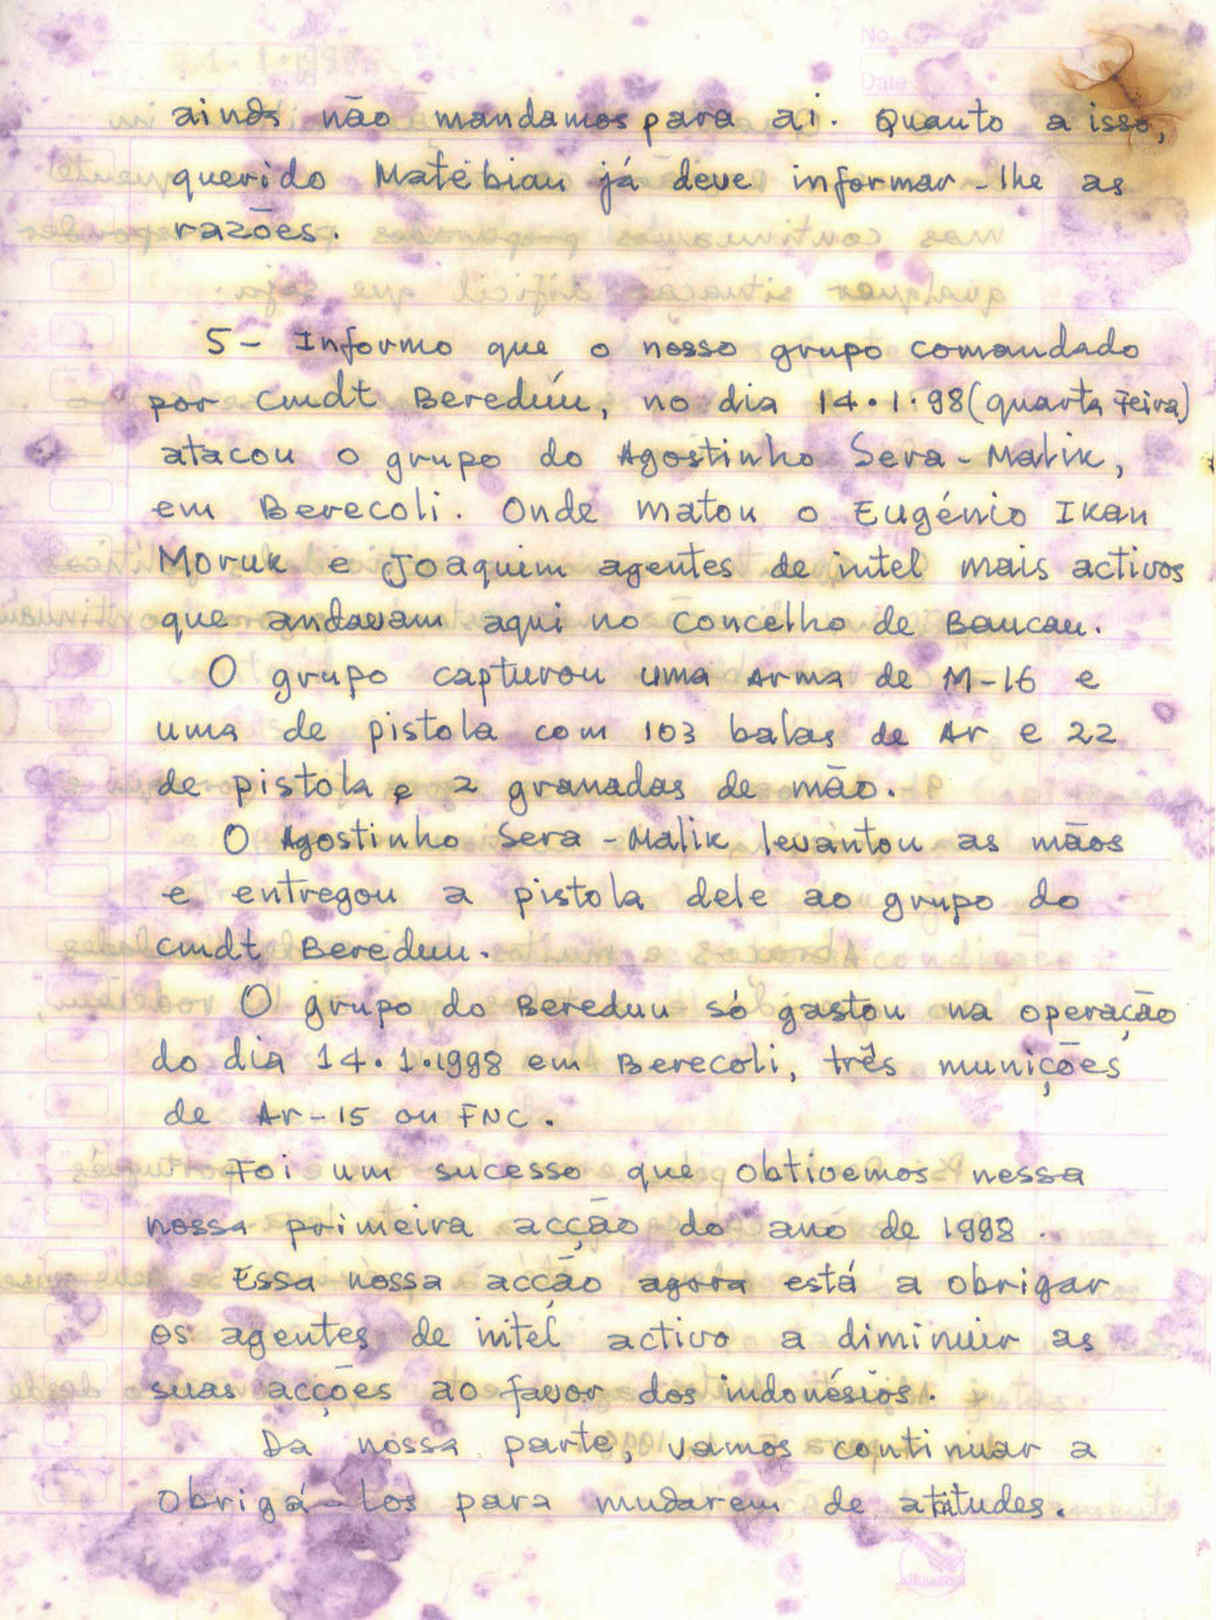 No.
Date
ainda não mandamos para ai. Quanto a isso,
querido Matebian já deve informar-lhe as
razões.
5- Informo que o nosso grupo comandado
por Cmdt Bereduú, no dia 14.1.98 (quarta Feira)
atacou o grupo do Agostinho Sera-Malik,
em Berecoli. Onde matou o Eugénio Ikan
Moruk e Joaquim agentes de intel mais activos
que andavam aqui no concelho de Baucau.
O grupo capturou uma arma de M-16 e
uma de pistola com 103 balas de Ar e 22
de pistola e 2 granadas de mão.
O Agostinho Sera-Malik levantou as mãos
e entregou a pistola dele ao grupo do
cmdt Bereduu.
O grupo do Bereduu só gastou na operação
do dia 14.1.1998 em Berecoli, três munições
de Ar-15 ou FNC.
Foi um sucesso que obtivemos nessa
nossa primeira acção do ano de 1998.
Essa nossa acção agora está a obrigar
os agentes de intel activo a diminuir as
suas acções ao favor dos indonésios.
Da nossa parte, vamos continuar a
obrigá-los para mudarem de atitudes.